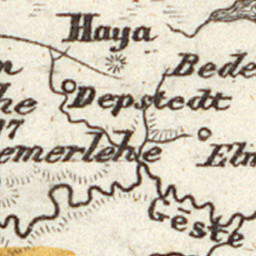 Haya
Bede
Depstedt
he
17
emerlehe
Elm
Geste